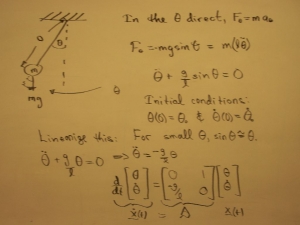 In the θ direct, Fθ = maθ
θ
m
mg
Fθ = -mg sin θ = m(lθ̈)
θ̈ + g/l sin θ = 0
Initial conditions:
θ(0) = θ₀ & θ̇(0) = θ̇₀
Linearize this: For small θ, sin θ ≅ θ.
θ̈ + g/l θ = 0 ⟹ θ̈ = -g/l θ
d/dt [θ θ̇] = [0 1 -g/l 0] [θ θ̇]
ẋ(t) = A x(t)